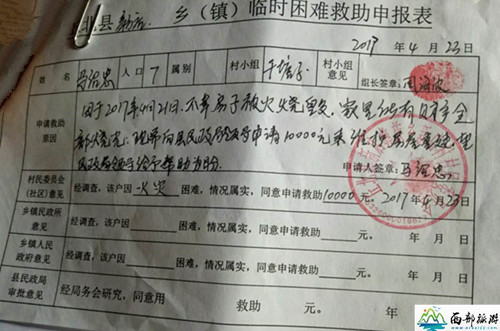 北县 乡（镇）临时困难救助申报表
2017 年 4 月 23 日
姓名 马治忠 人口 7 属别 村小组 村小组意见 组长签章：
申请救助原因 因于2017年4月21日，不幸房子被火烧毁，家里所有财产全
部烧完，现特向县民政局领导申请10000元来维护房屋重建，望
民政局领导给予帮助为盼
申请人签章：马治忠
村民委员会（社区）意见 经调查，该户因 火灾 困难，情况属实，同意申请救助 10000 元。 2017 年 4 月 23 日
乡镇民政所意见 经调查，该户因 困难，情况属实，同意申请救助 元。 年 月 日
乡镇人民政府意见 经调查，该户因 困难，情况属实，同意申请救助 元。 年 月 日
县民政局审批意见 经局务会研究，同意用 救助 元。 年 月
西部旅游